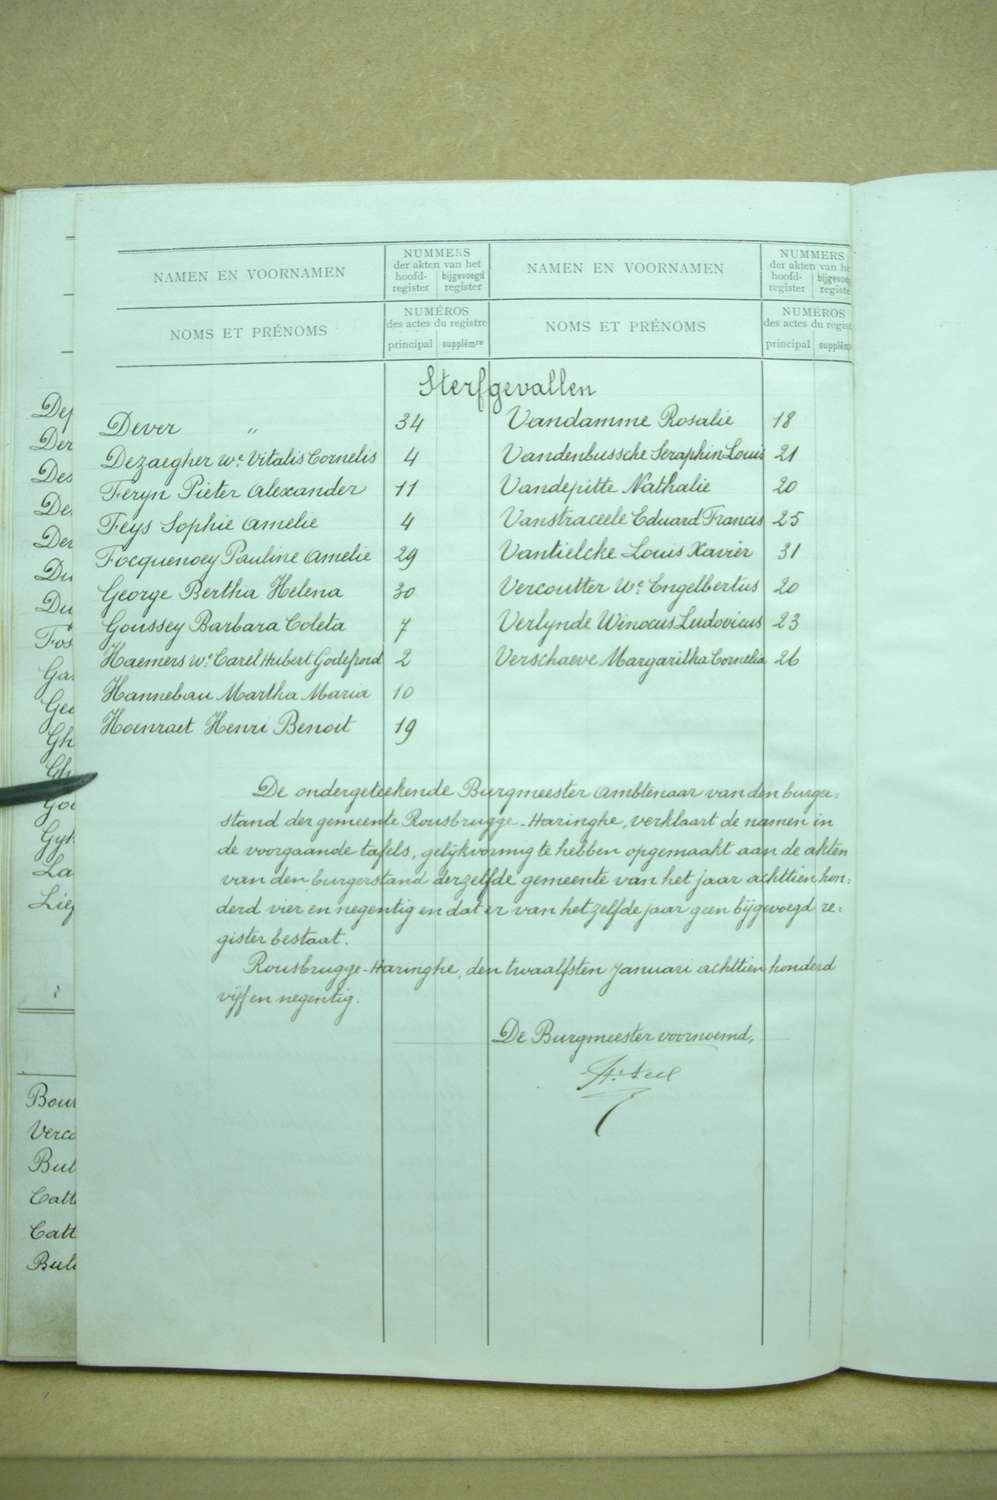 NAMEN EN VOORNAMEN
NUMMERS
der akten van het
hoofd-register
bijgevoegd register
NAMEN EN VOORNAMEN
NUMMERS
der akten van he
hoofd-register
bijgevoeg registe
NOMS ET PRÉNOMS
NUMÉROS
des actes du registre
principal
supplémre
NOMS ET PRÉNOMS
NUMÉROS
des actes du regist
principal
supplém
Sterfgevallen
Dever " 34
Dezaegher We Vitalis Cornelis 4
Feryn Pieter Alexander 11
Feys Sophie Amelie 4
Focquenoey Pauline Amelie 29
George Bertha Helena 30
Goussey Barbara Coleta 7
Haemers We Carel Hubert Godefroid 2
Hannebau Martha Maria 10
Hoenraet Henri Benoit 19
Vandamme Rosalie 18
Vandenbussche Seraphin Louis 21
Vandepitte Nathalie 20
Vanstraceele Eduard Francis 25
Vantielcke Louis Xavier 31
Vercoutter We Engelbertus 20
Verlynde Winocus Ludovicus 23
Verschaeve Margaritha Cornelia 26
De ondergeteekende Burgmeester Ambtenaar van den burger=
stand der gemeente Rousbrugge-Haringhe, verklaart de namen in
de voorgaande tafels, gelijkvormig te hebben opgemaakt aan de akten
van den burgerstand derzelfde gemeente van het jaar achttien hon=
derd vier en negentig en dat er van hetzelfde jaar geen bijgevoegd re=
gister bestaat.
Rousbrugge-Haringhe, den twaalfsten Januari achttien honderd
vijf en negentig.
De Burgmeester voornoemd,
Dep
Der
Des
De
Der
Du
Du
Fos
Ga
Geo
Gh
Gh
Goe
Gyh
La
Liep
Bour
Verco
But
Catt
Catt
Bul